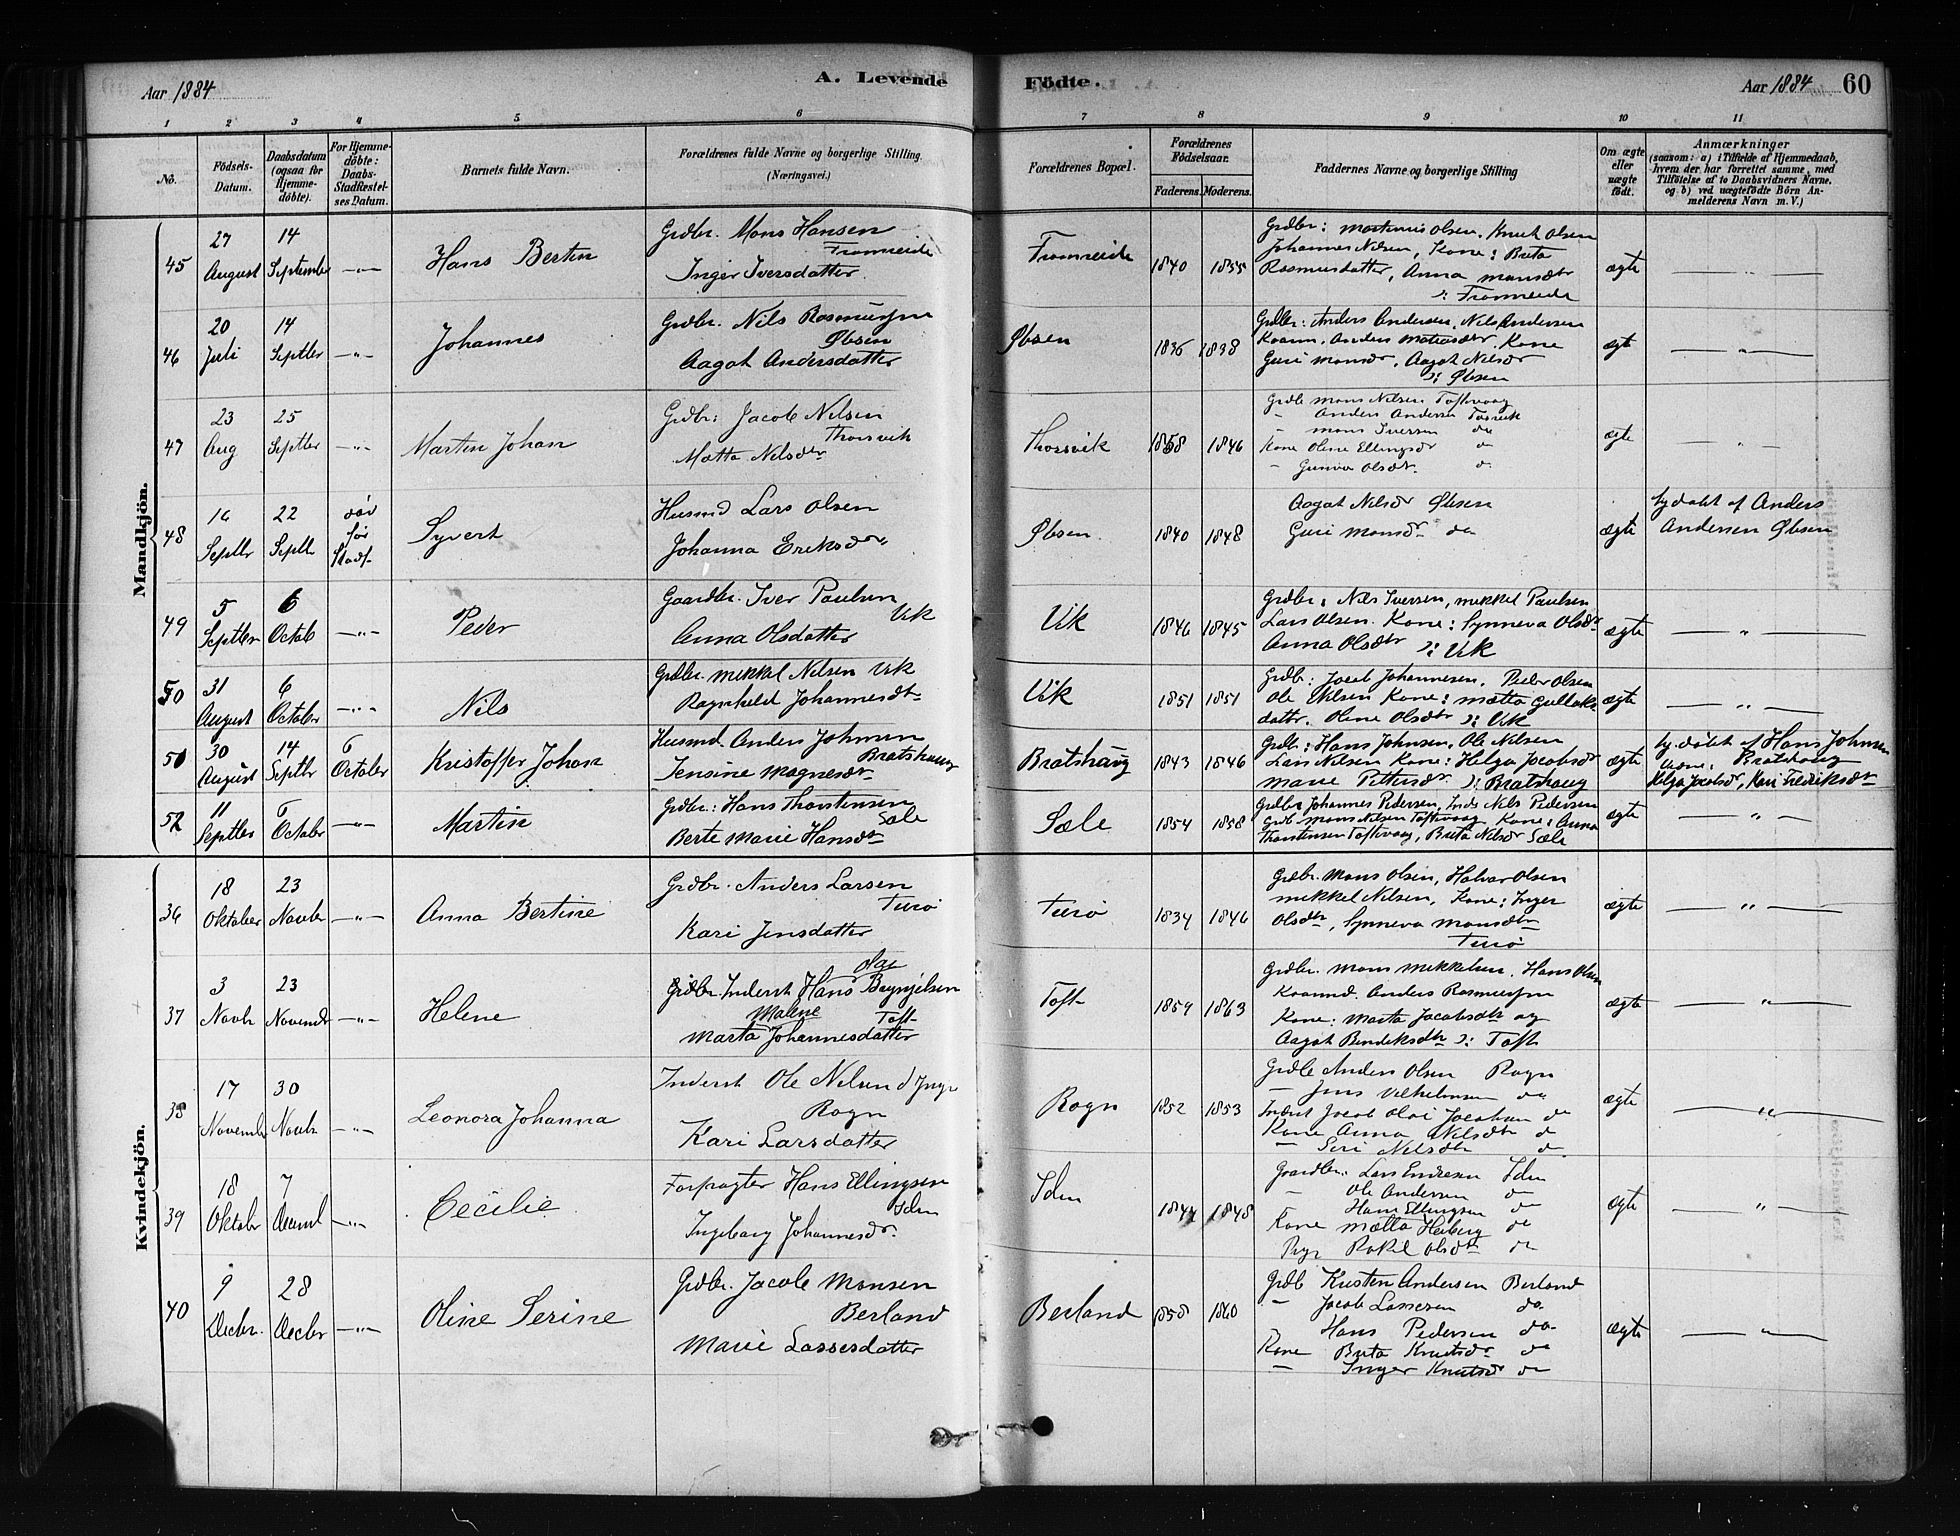 Aar 1884
A. Levende
Födte.
Aar 1884
60
1 2 3 4 5 6 7 8 9 10 11
No.
Födsels-Datum.
Daabsdatum (ogsaa for Hjemme-döbte).
For Hjemme-döbte: Daabs-Stadfæstel-ses Datum.
Barnets fulde Navn.
Forældrenes fulde Navne og borgerlige Stilling. (Næringsvei.)
Forældrenes Bopæl.
Forældrenes Födselsaar.
Faderens. Moderens.
Faddernes Navne og borgerlige Stilling
Om ægte eller uægte født.
Anmærkninger
(saasom: a) i Tilfælde af Hjemmedaab, hvem der har forrettet samme, med Tilföielse af to Daabsvidners Navne, og b) ved uægtefödte Börn An-melderens Navn m. V.)
Mandkjön.
45
27 August
14 September
Hans Bertin
Grdbr. Mons Hansen
Fromreide
Inger Iversdatter
Fromreide
1840 1855
Grdbr: Martinus Olsen, Knut Olsen
Johannes Nilsen, Kone: Brita
Rasmusdatter, Anna Monsdtr
: Fromreide
ægte
46
20 Juli
14 Septbr
Johannes
Grdbr. Nils Rasmussen
Øbsen
Aagot Andersdatter
Øbsen
1836 1838
Grdbr: Anders Andersen, Nils Andersen
Kone
Guri Monsdr, Aagot Nilsdr
: Øbsen
ægt
47
23 Aug
25 Septbr
Martin Johan
Grdbr: Jacob Nilsen
Thorsvik
Matta Nilsdtr
Thorsvik
1858 1846
Grdb Mons Nilsen Toftevaag
- Anders Andersen Torsvik
- Mons Iversen do
Kone Oline Ellingsdr
- Gunva Olsdtr do
ægte
48
16 Septbr
22 Septb
död för Stadf-
Syvert
Husmd Lars Olsen
Johanna Eriksdtr
Øbsen.
1840 1848
Aagot Nilsdr Øbsen
Guri Monsdr do
ægte
hj døbt af Anders
Andersen Øbsen
49
5 Septber
6 Octob
Peder
Gaardbr. Iver Paulsen
Vik
Anna Olsdatter
Vik
1846 1845
Grdbr: Nils Iversen, Mikkel Paulsen
Lars Olsen. Kone: Synneva Olsdtr
Anna Olsdtr : Vik
ægte
50
31 August
6 October
Nils
Grdbr. Mikkel Nilsen Vik
Ragnhild Johannesdtr
Vik
1851 1851
Grdbr: Jacob Johannesen, Peder Olsen
Ole Nilsen Kone: Matta Gullaks
dattr. Oline Olsdtr : Vik
ægte
51
30 August
14 Septbr
6 October
Kristoffer Johan
Husmd. Anders Johnsen
Bratshaug
Jensine Magnesdtr
Bratshaug
1843 1846
Grdbr: Hans Johnsen, Ole Nilsen
Lars Nilsen Kone: Helga Jacobsdtr
Marie Pettersdr : Bratshaug
ægte
hj døbt af Hans Johnsen
Vidne: Bratshaug
Helga Jacobsdr, Kari Fredriksdtr
52
11 Septber
6 October
Martin
Grdbr: Hans Thorstensen
Sæle
Berte Marie Hansdtr
Sæle
1854 1858
Grdbr: Johannes Pedersen, Inds Nils Pedersen
Grdb Mons Nilsen Toftevaag Kone: Anna
Thorstensen Toftevaag, Brita Nilsdr Sæle
ægte
Kvindekjön.
36
18 Oktober
23 Novbr
Anna Bertine
Grdbr. Anders Larsen
Turø
Kari Jensdatter
Turø
1834 1846
Grdbr. Mons Olsen, Halvar Olsen
Mikkel Nilsen, Kone: Inger
Olsdtr, Synneva Monsdtr
Turø
ægte
37
3 Novbr
23 Novembr
Helene
Grdbr. Inderst Hans Olai Brynjelsen
Malene Toft
Marta Johannesdatter
Toft
1859 1863
Grdbr. Mons Mikkelsen, Hans Olsen
Anders Rasmussen
Kone: Marta Jacobsdtr og
Aagot Bendiksdtr : Toft
ægte
38
17 Novembr
30 Novbr
Leonora Johanna
Inderst Ole Nilsen d Yngr
Rogn
Kari Larsdatter
Rogn
1852 1853
Grdb Anders Olsen Rogn
- Jens Vilhelmsen do
Inderst Jacob Olai Jacobsen do
Kone Anna Nilsdtr do
- Siri Nilsdtr do
ægte
39
18 Oktober
7 Decemb
Cecilie
Forpagter Hans Ellingsen
Idm
Ingeborg Johannesdr.
Idm
1844 1848
Gaardbr. Lars Endresen Idm
- Ole Andersen do
- Hans Ellingsen do
Kone Matta Heiberg do
Pige Rakel Olsdtr do
ægte
40
9 Decbr.
28 Decbr
Oline Serine
Grdbr. Jacob Monsen
Berland
Marie Lassesdatter
Berland
1858 1860
Grdb Kristen Andersen Berland
- Jacob Lassesen do
- Hans Pedersen do
Kone Brita Knutsdr do
- Inger Knutsdr do
ægte